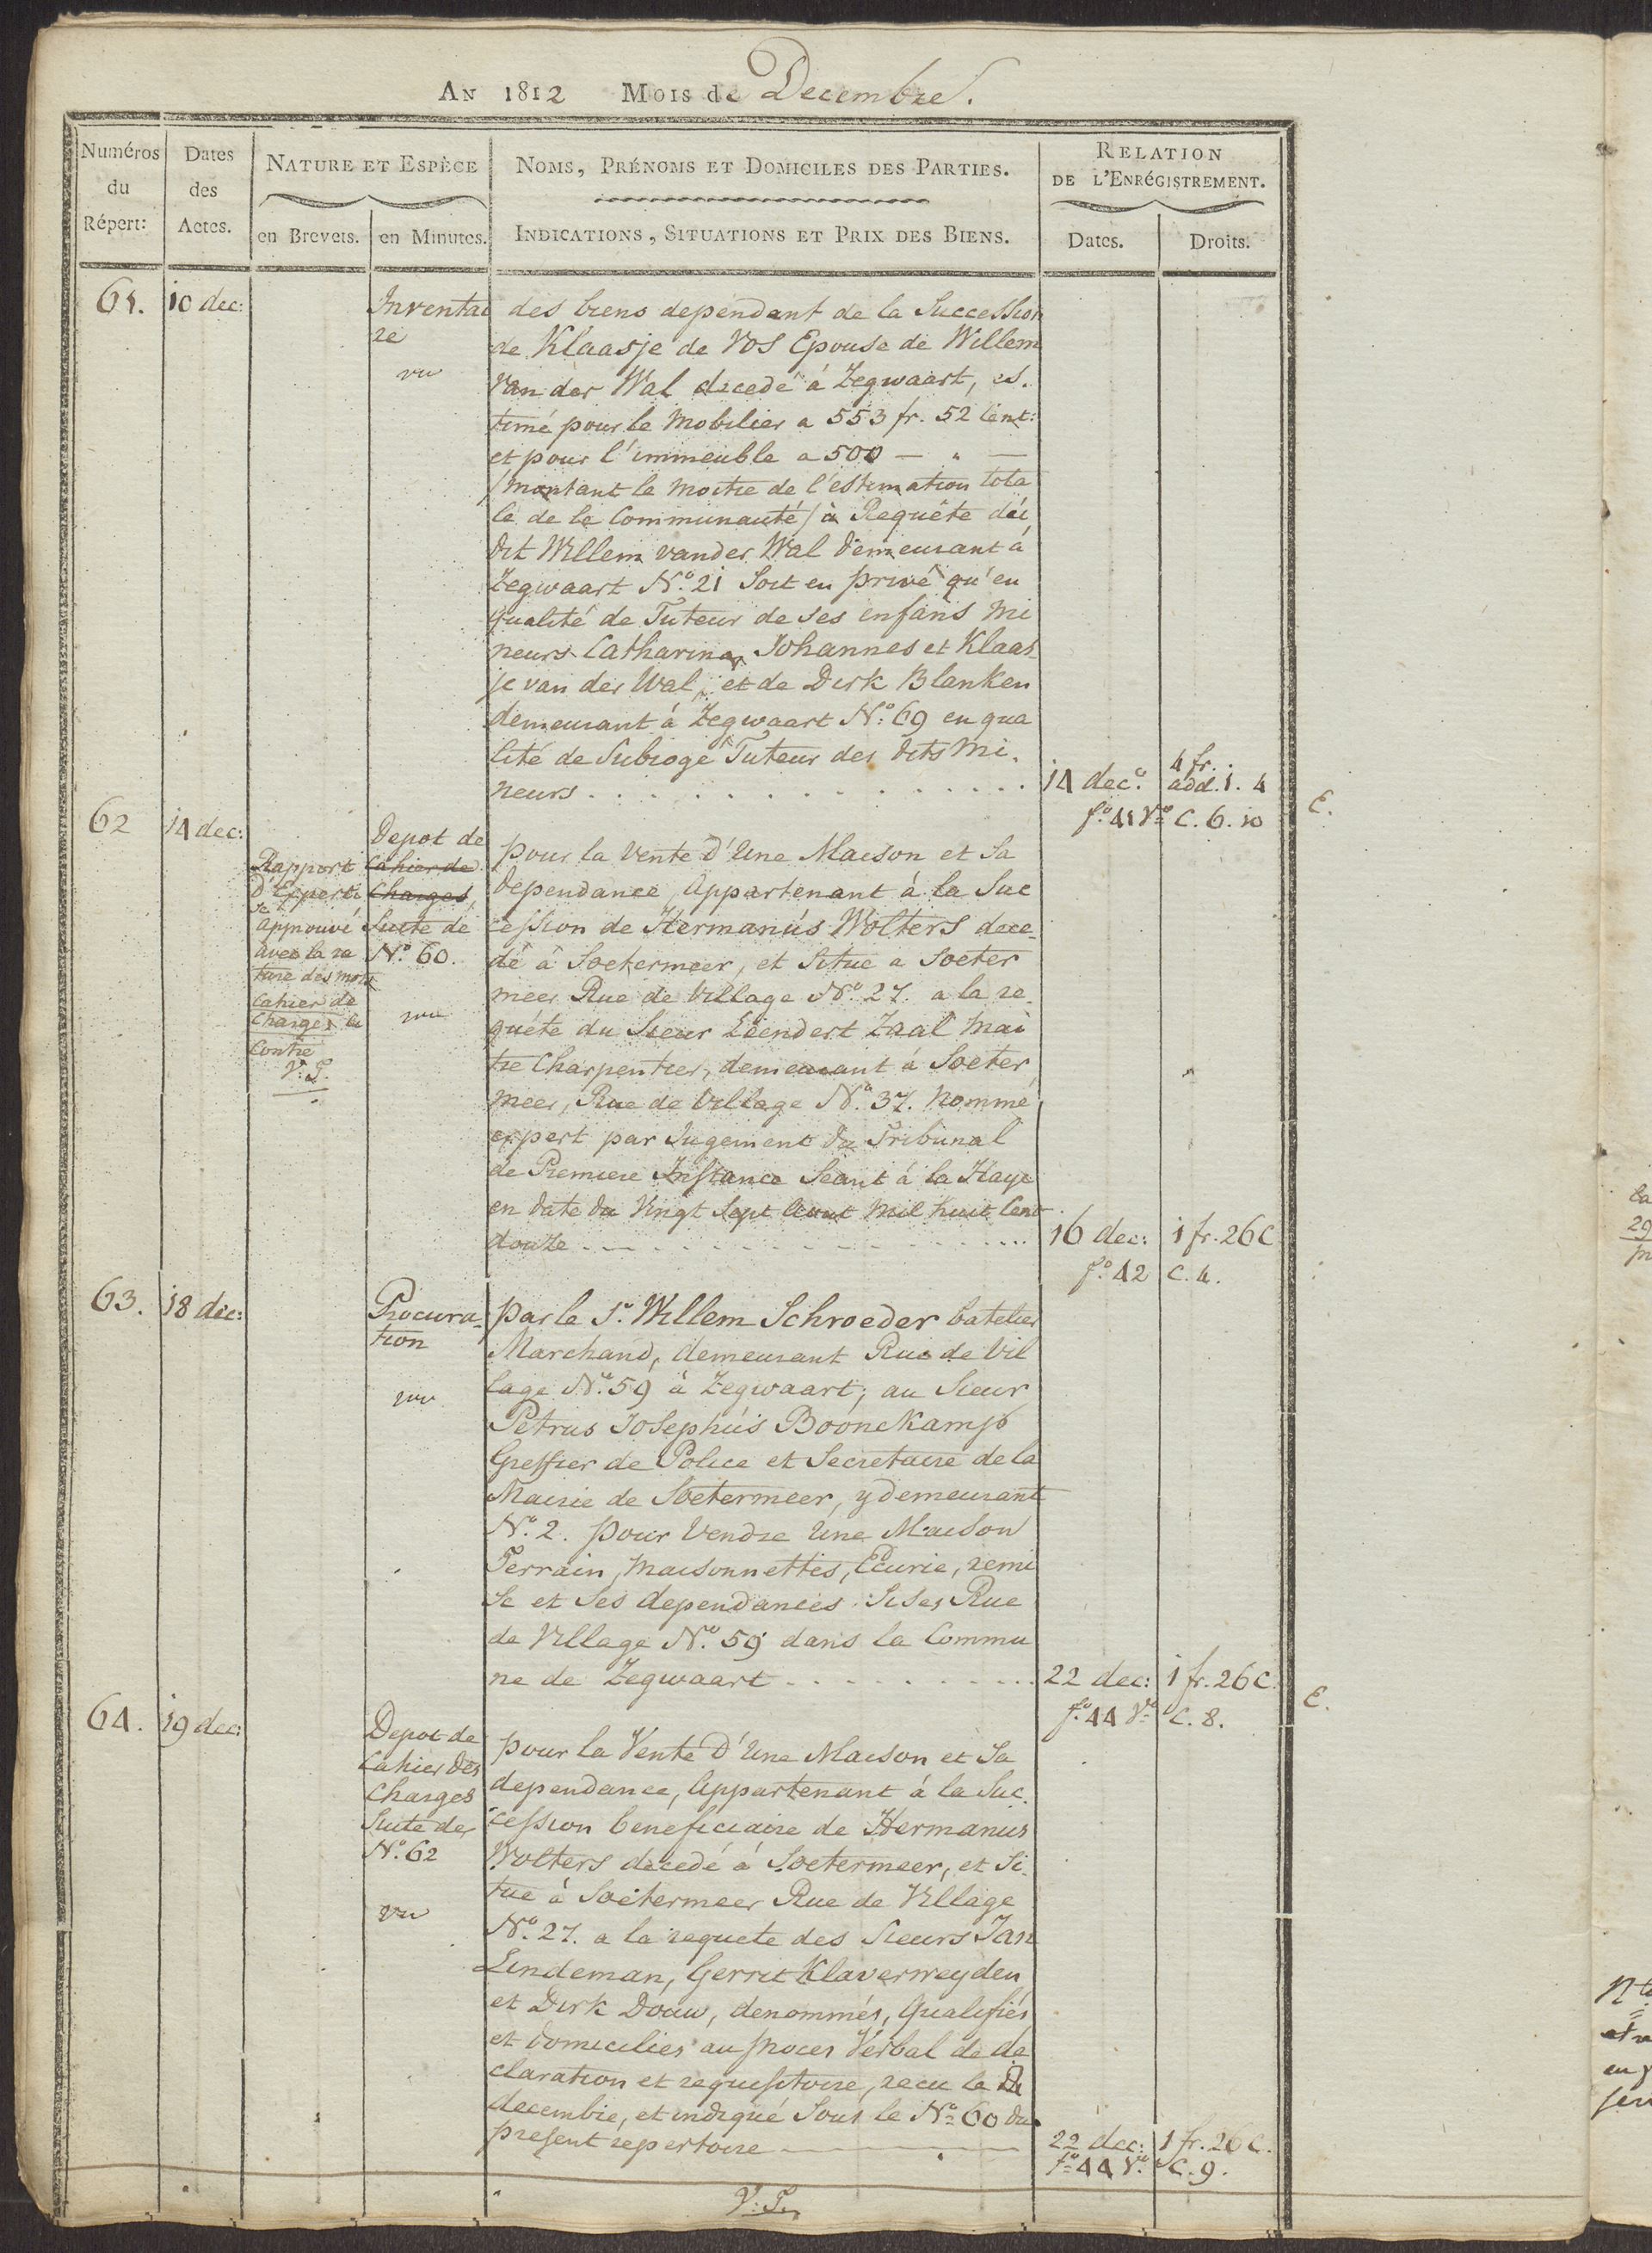 An 1812 Mois de Decembre.
Numéros du Répert:
Dates des Actes.
Nature et Espèce
en Brevets.
en Minutes.
Noms, Prénoms et Domiciles des Parties.
Indications, Situations et Prix des Biens.
Relation de l'Enrégistrement.
Dates.
Droits.
61.
10 dec:
Inventai
re
vu
des biens dependant de la Succession
de Klaasje de Vos Epouse de Willem
van der Wal decedé á Zegwaart, es.
timé pour le mobilier a 553 fr. 52 Cent:
et pour l'immeuble a 500 — " —
/montant la moitie de l'estimation tota
le de la Communauté/ à Requête du
dit Willem vander Wal demeurant á
Zegwaart No. 21 Soit en privé qu'en
qualité de Tuteur de ses enfans mi
neurs Catharina, Johannes et Klaas
je van der Wal, et de Dirk Blanken
demeurant á Zegwaart No. 69 en qua
lité de Subrogé Tuteur des dits mi.
neurs . . . . . . . . . . . . . . .
14 dec.
fo. 41 Vo
4 fr.
add. 1. 4
C. 6. 10
E.
62
14 dec:
Rapport
d'Experti
se
approuvé
avec la ra
ture des mots
Cahier de
Charges ci
Contre
V. P.
Depot de
Cahier de
Charges,
Suite de
No. 60.
vu
pour la vente d'Une Maison et Sa
dependance, Appartenant à la Suc
cession de Hermanús Wolters dece-
dé â Soetermeer, et Situe a Soeter
meer Rue de Village No. 27. a la re-
quéte du Sieur Leendert Zaal Mai
tre Charpentier, demeurant á Soeter
meer, Rue de Village No. 37. nommé
expert par Jugement du Tribunal
de Premiere Instance Seant á la Haye
en date du Vingt Sept Aout Mil huit Cent
douze . . . . . . . . . . . .
16 dec:
fo. 42
1 fr. 26 C
C. 4.
63.
18 dec:
Procura-
tion
vu
par le Sr. Willem Schroeder batelier
Marchand, demeurant Rue de Vil
lage No. 59 à Zegwaart; au Sieur
Petrus Josephús Boonekamp
Greffier de Police et Secretaire de la
Mairie de Soetermeer, y demeurant
No. 2. pour Vendre Une Maison
Terrain, maisonnettes, Ecurie, remi
se et ses dependances. Sises Rue
de Village No. 59 dans la Commu
ne de Zegwaart . . . . . . . . .
22 dec:
fo. 44 Vo
1 fr. 26 C.
C. 8.
E.
64.
19 dec:
Depot de
Cahier des
Charges
Suite de
No. 62
vu
pour la Vente d'Une Maison et Sa
dependance, Appartenant á la Suc.
cession beneficiaire de Hermanus
Wolters decedé á Soetermeer, et Si-
tue à Soetermeer Rue de Village
No. 27. a la requete des Sieurs Jan
Lindeman, Gerrit Klaverweyden
et Dirk Douw, denommés, qualifiés
et domicilies au proces Verbal de de
claration et requisitoire, recu le
decembre, et indiqué Sous le No. 60 du
present repertoire
22 dec:
fo. 44 Vo.
1 fr. 26 C.
C. 9.
V. P.